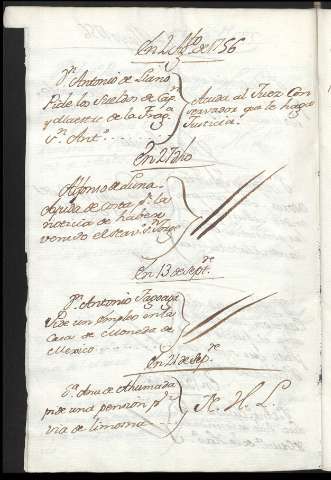 En 2 Ag.to de 1756
D.n Antonio de Llano
Pide los sueldos de Cap.n
y director de la Frag.a
S.n Ant.o
Acuda al Juez Con
servador que le haga
Justicia.
En 27 dho
Alfonso de Luna
Ayuda de costa p.r la
noticia de haber
venido el
En 13 de Sept.re
D.n Antonio
Pide un empleo en la
Casa de Moneda de
Mexico
En 21 de Sep.re
D.a Ana de Ahumada
pide una pension p.r
via de limosna
N. H. L.